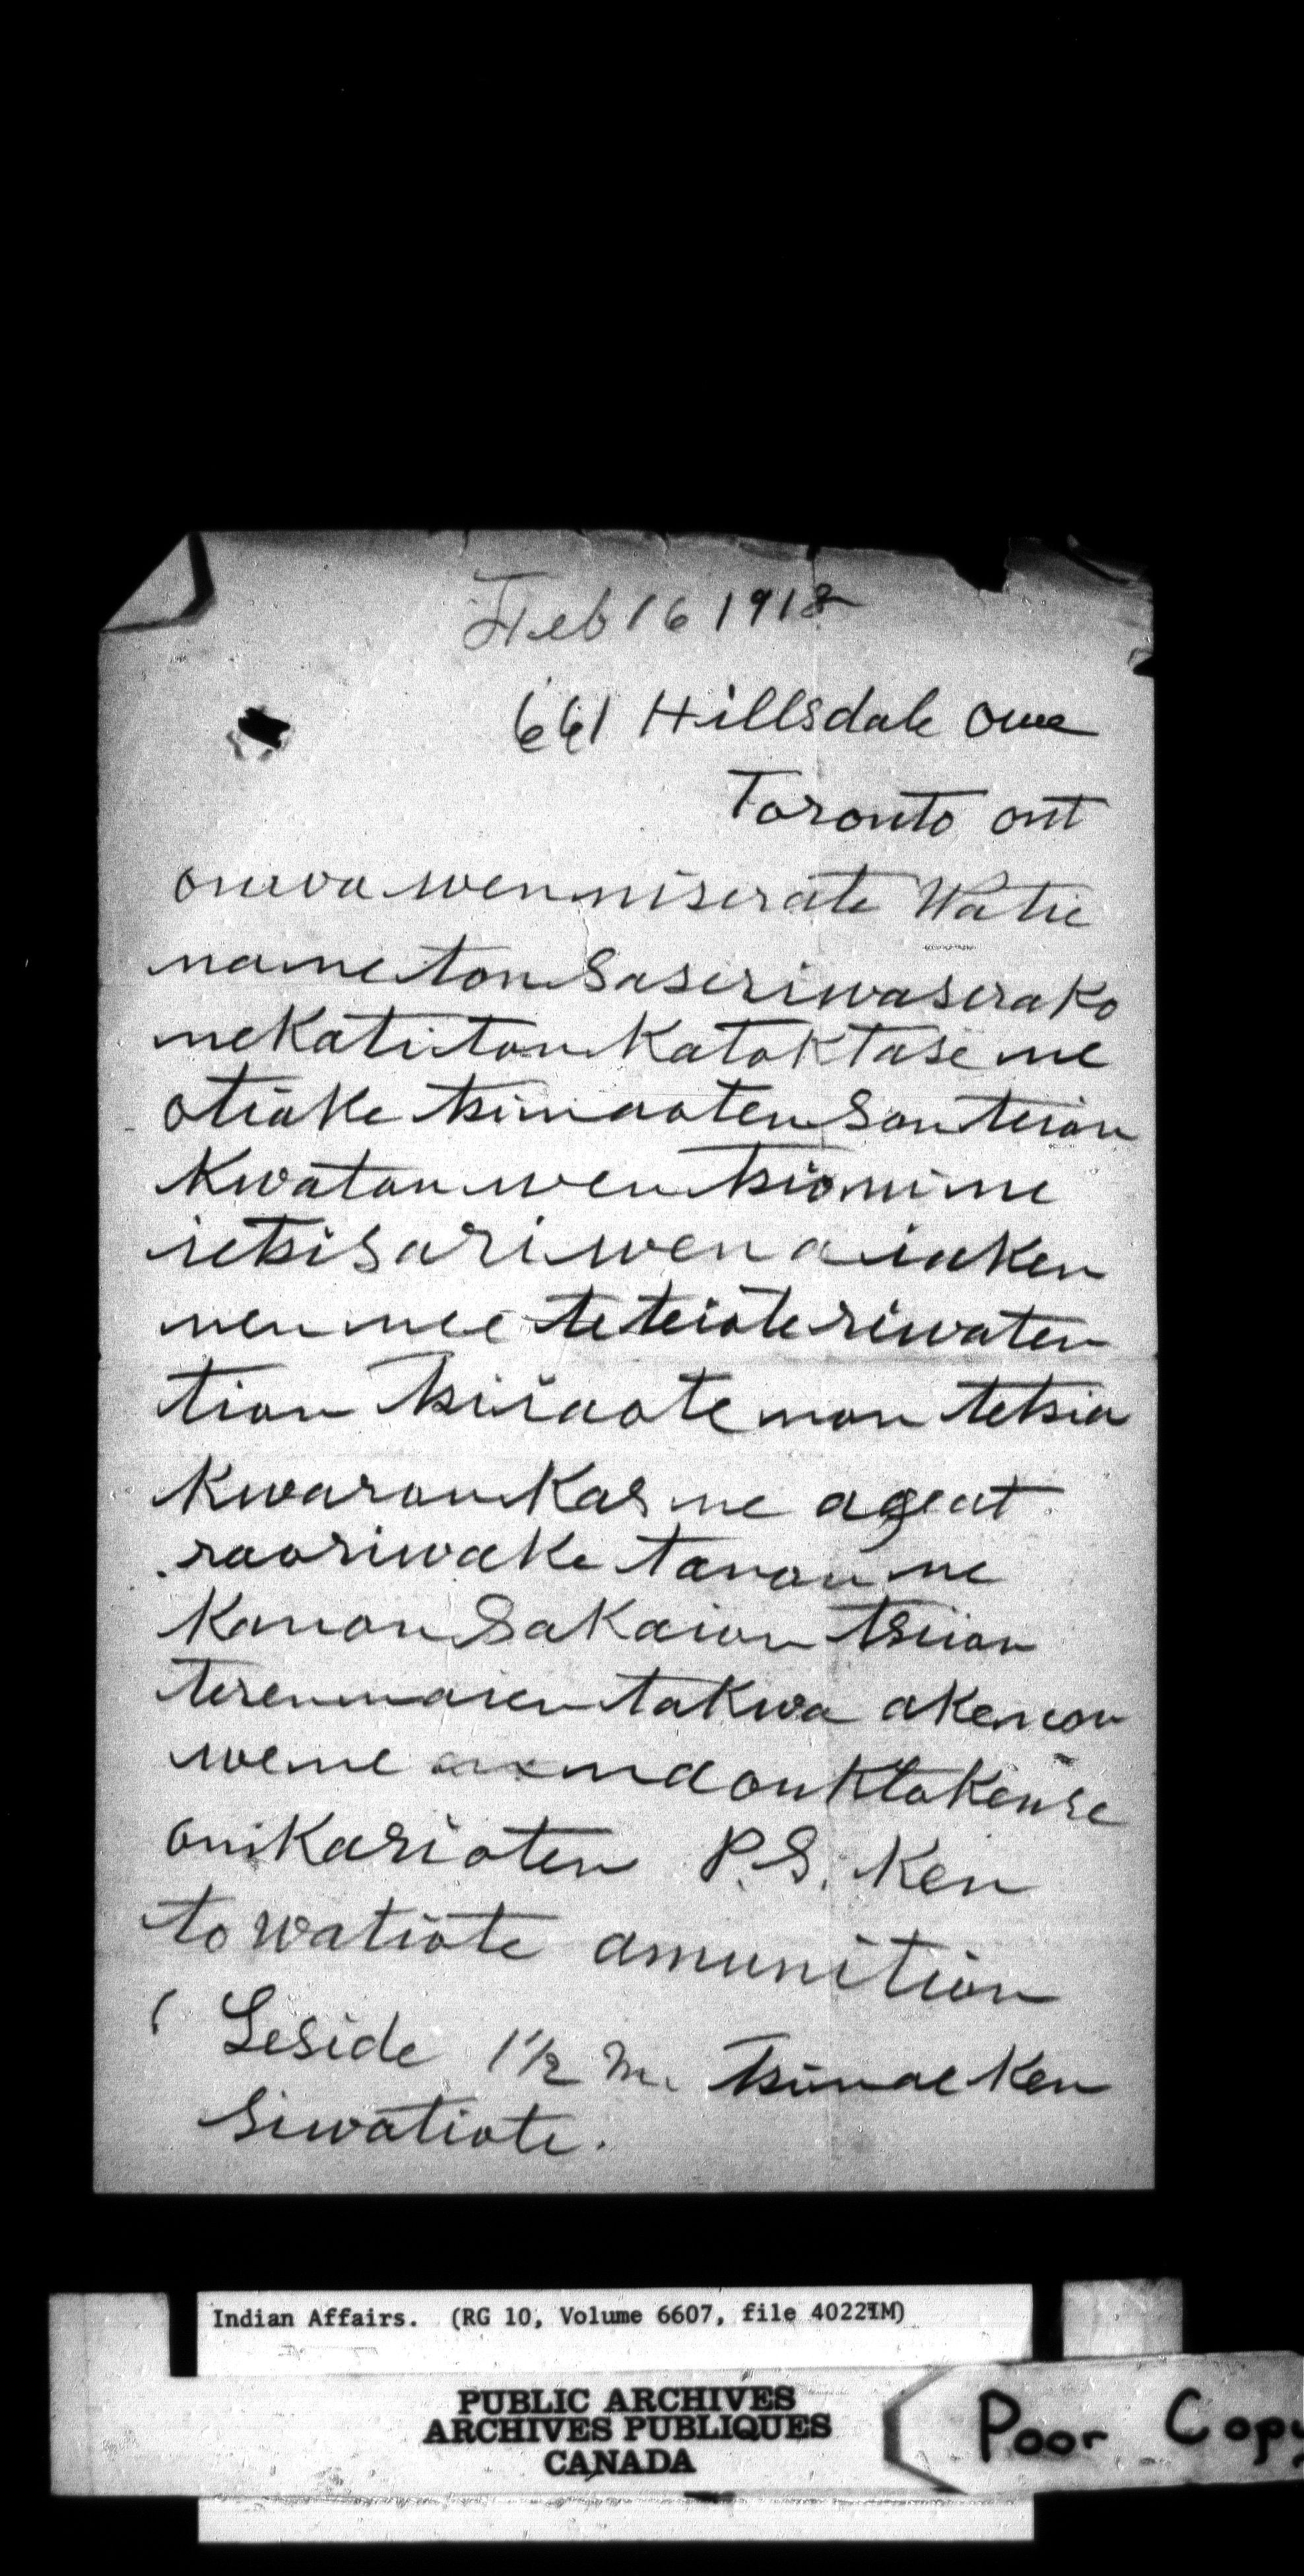 Feb 16 1918
661 Hillsdale Ave
Toronto ont
onwa wenniserate Watie
namne ton Saseriwaserako
neKati ton Katoktase ne
otiake tsinaaten Son teion
Kwatonwen tsioni ne
ietsisariwen a iaken
nen nee te teioteriwaten
tion tsiiaote non tetsia
Kwaron Kas ne agent
raoriwake tanon ne
Kanon Sakaion tsiion
terennaien takwa akenon
wene onktakenre
onikarioten P.S. Ken
to watiote amunition
( Leside 1½ m. tsinae Ken
Siwatiote.
Indian Affairs. (RG 10, Volume 6607, file 4022-1M)
PUBLIC ARCHIVES
ARCHIVES PUBLIQUES
CANADA
Poor Copy